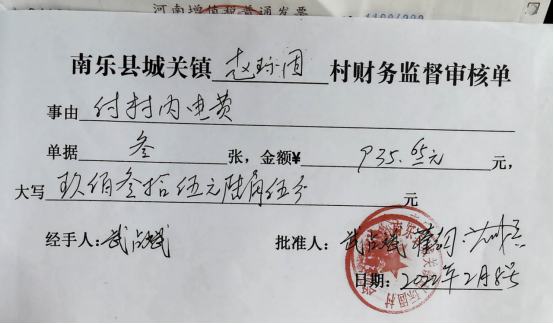 河南增值税普通发票
南乐县城关镇赵珍固村财务监督审核单
事由 付村内电费
单据 叁 张，金额¥ 935.65元 元，
大写 玖佰叁拾伍元陆角伍分 元
经手人：武占斌 批准人：武占斌
日期：2022年2月8号